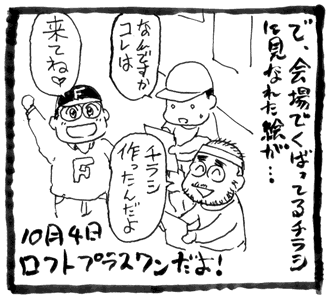 で、会場でくばってるチラシ
に見なれた絵が…
なんですか
コレは
来てね♡
F
F
チラシ
作ったんだよ
10月4日
ロフトプラスワンだよ!